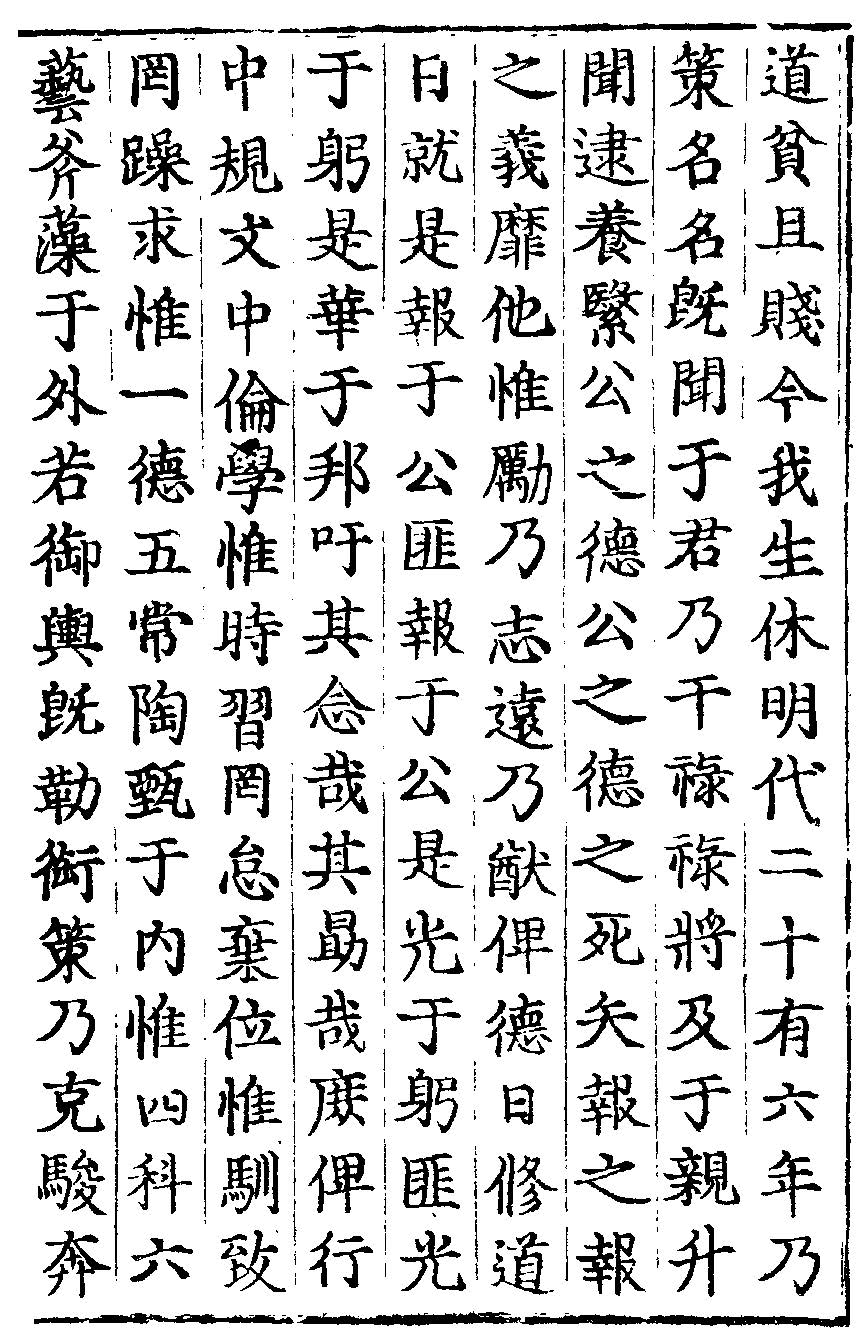 道貧且賤今我生休明代二十有六年乃
策名名既聞于君乃干祿祿將及于親升
聞逮養繄公之德公之德之死矢報之報
之義靡他惟勵乃志遠乃猷俾德日修道
日就是報于公匪報于公是光于躬匪光
于躬是華于邦吁其念哉其勗哉庶俾行
中規文中倫學惟時習罔怠棄位惟馴致
罔躁求惟一德五常陶甄于內惟四科六
藝斧藻于外若御輿既勒銜策乃克駿奔